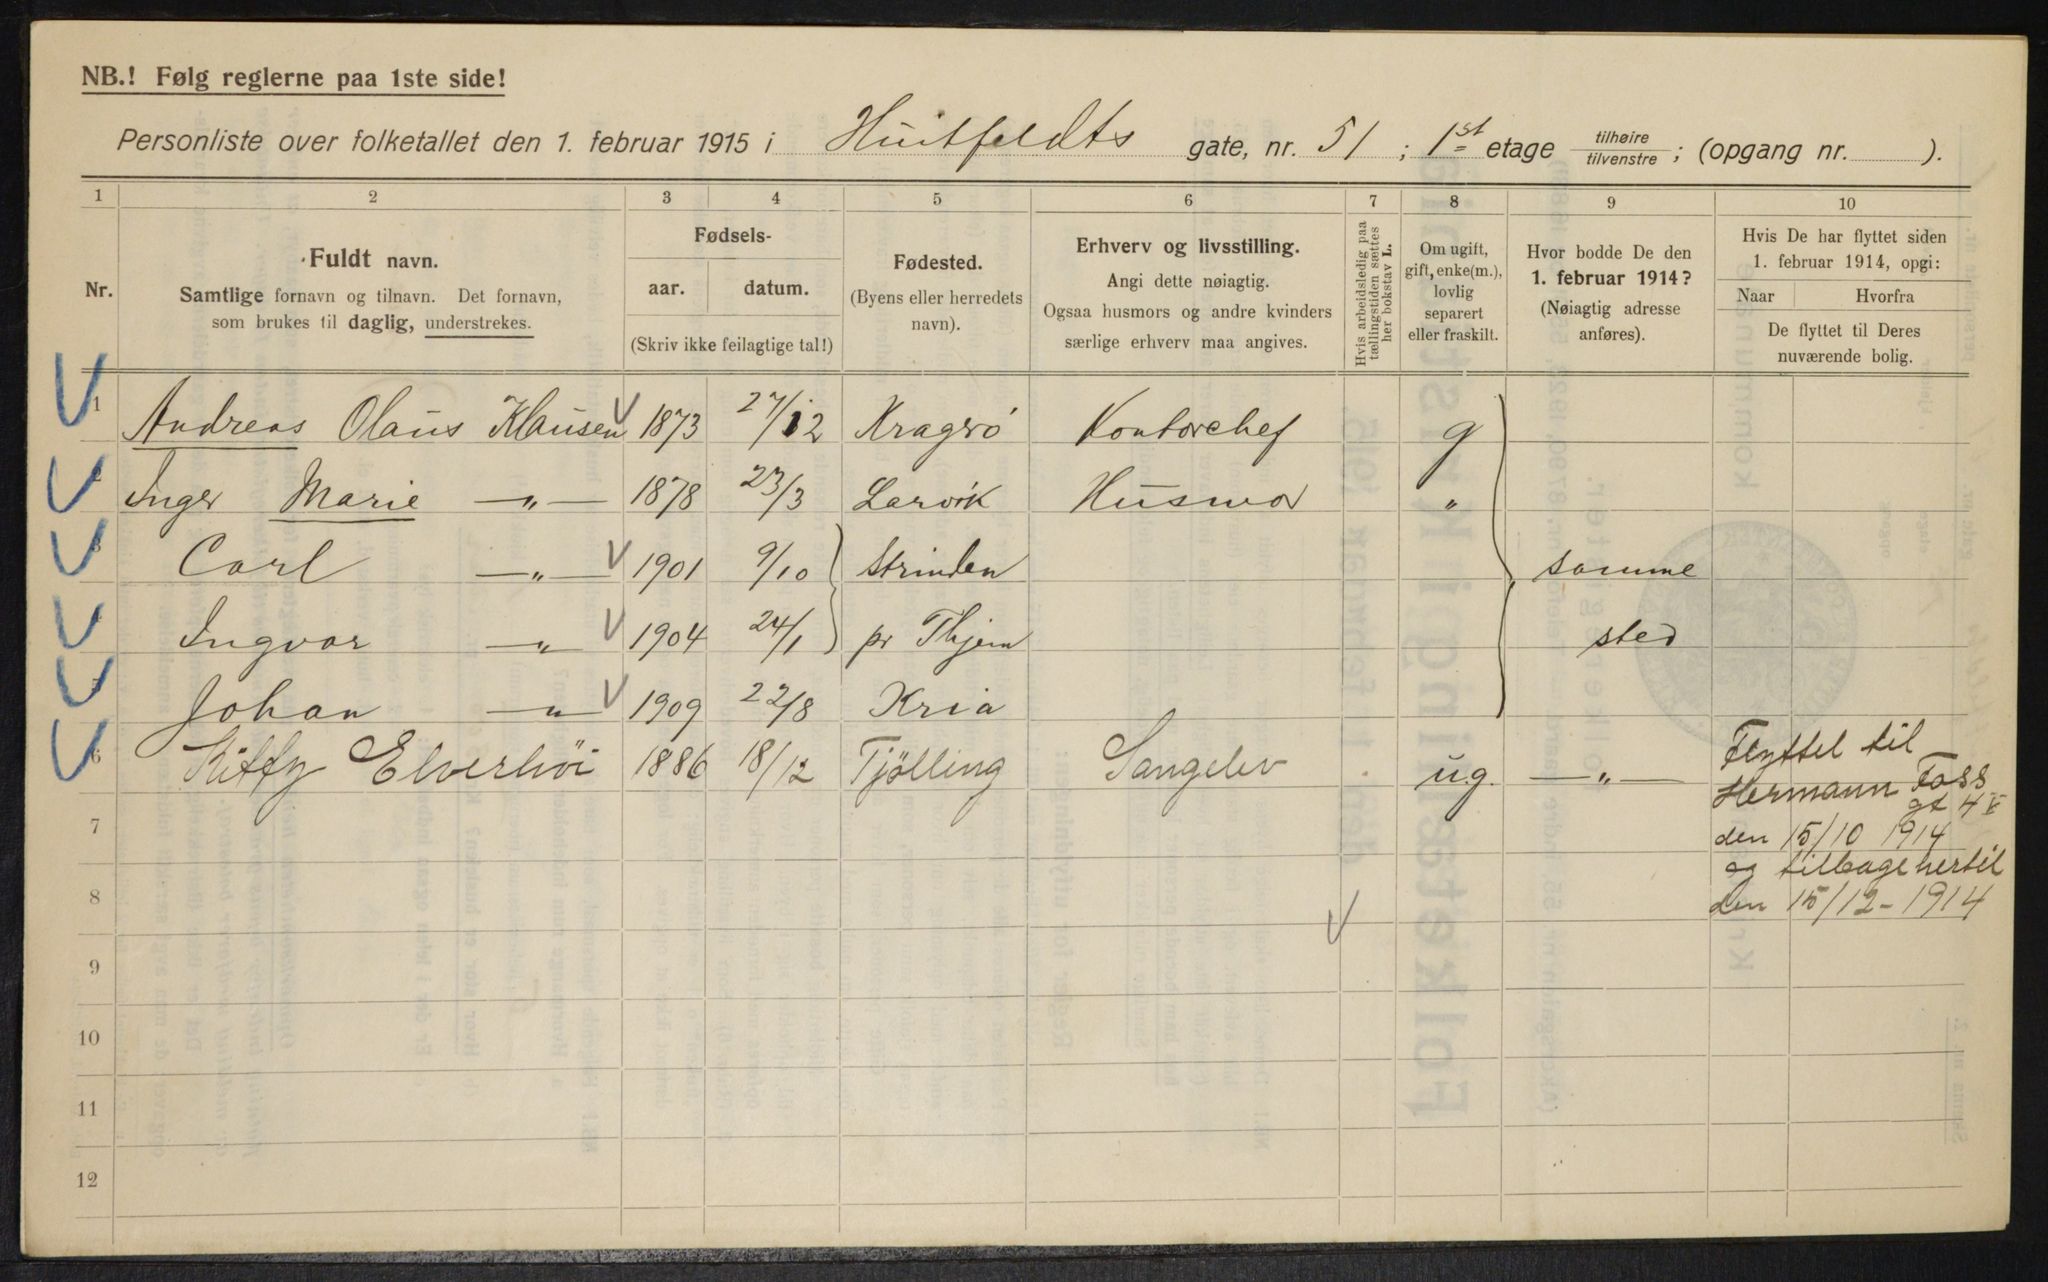 NB.! Følg reglerne paa 1ste side!
Personliste over folketallet den 1. februar 1915 i Huitfeldts gate, nr. 51 ; 1st etage tilhøire/tilvenstre ; (opgang nr. ).
1 2 3 4 5 6 7 8 9 10
Nr.
Fuldt navn.
Samtlige fornavn og tilnavn. Det fornavn,
som brukes til daglig, understrekes.
Fødsels-
aar. datum.
(Skriv ikke feilagtige tal!)
Fødested.
(Byens eller herredets
navn).
Erhverv og livsstilling.
Angi dette nøiagtig.
Ogsaa husmors og andre kvinders
særlige erhverv maa angives.
Hvis arbeidsledig paa
tællingstiden sættes
her bokstav L.
Om ugift,
gift, enke(m.),
lovlig
separert
eller fraskilt.
Hvor bodde De den
1. februar 1914?
(Nøiagtig adresse
anføres).
Hvis De har flyttet siden
1. februar 1914, opgi:
Naar Hvorfra
De flyttet til Deres
nuværende bolig.
1 Andreas Olaus Klausen 1873 27/12 Kragerö Kontorchef g
2 Inger Marie —„— 1878 23/3 Larvik Husmor „
3 Carl —„— 1901 9/10 Strinden samme
Ingvar —„— 1904 24/1 pr Thjem sted
5 Johan —„— 1909 22/8 Kria
6 Kitty Elverhöi 1886 18/12 Tjölling Sangelev ug. —„—
Flyttet til
Hermann Foss
gt 4
den 15/10 1914
og tilbage hertil
den 15/12-1914
7
8
9
10
11
12